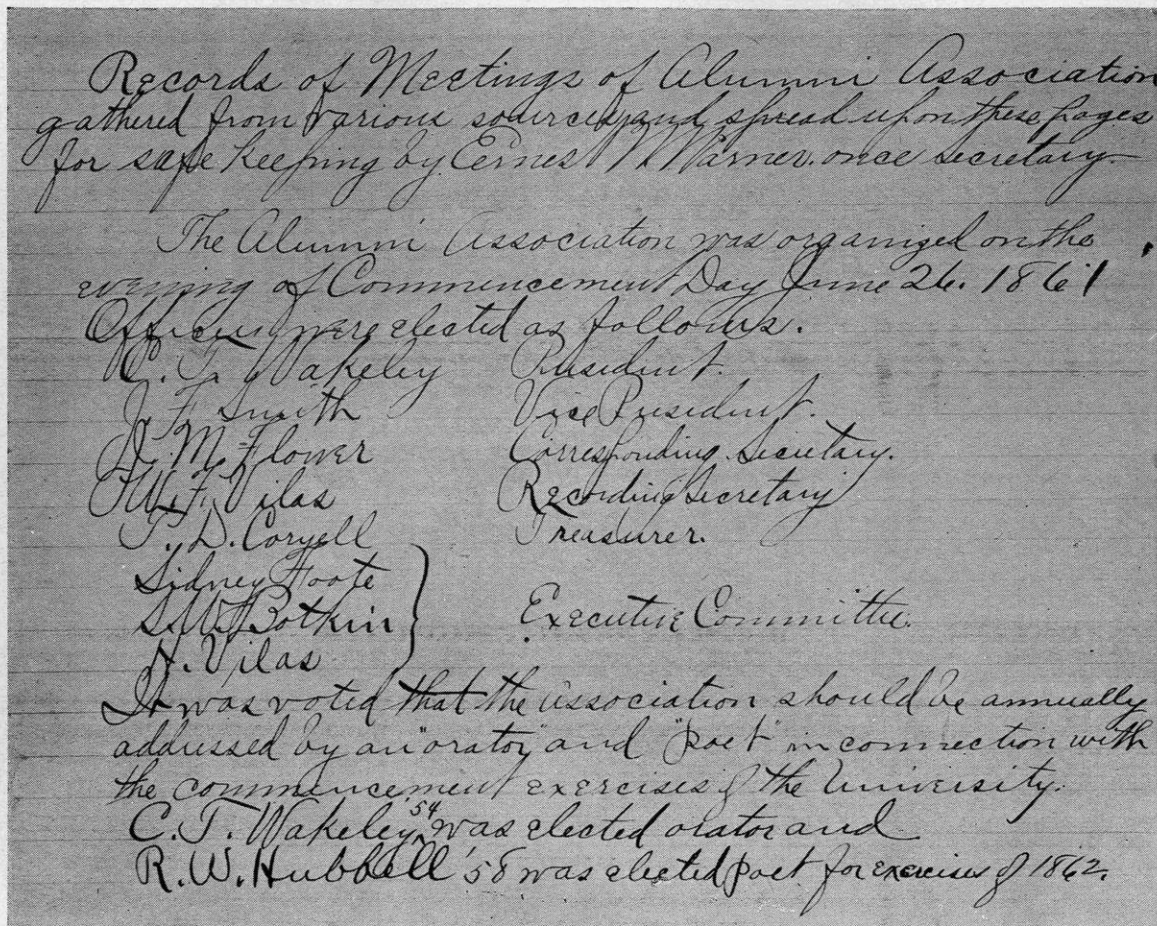 Records of Meetings of Alumni Association
gathered from various sources, and spread upon these pages
for safe keeping by Ernest N. Warner. once secretary.
The Alumni Association was organized on the
evening of Commencement Day June 26. 1861
Officers were elected as follows.
C. T. Wakeley President.
J. F. Smith Vice President.
J. M. Flower Corresponding Secretary.
W. F. Vilas Recording Secretary
T. D. Coryell Treasurer.
Sidney Foote
S. W. Botkin Executive Committee.
H. Vilas
It was voted that the association should be annually
addressed by an "orator" and "poet" in connection with
the commencement exercises of the University.
C. T. Wakeley '54 was elected orator and
R. W. Hubbell '58 was elected poet for exercises of 1862.